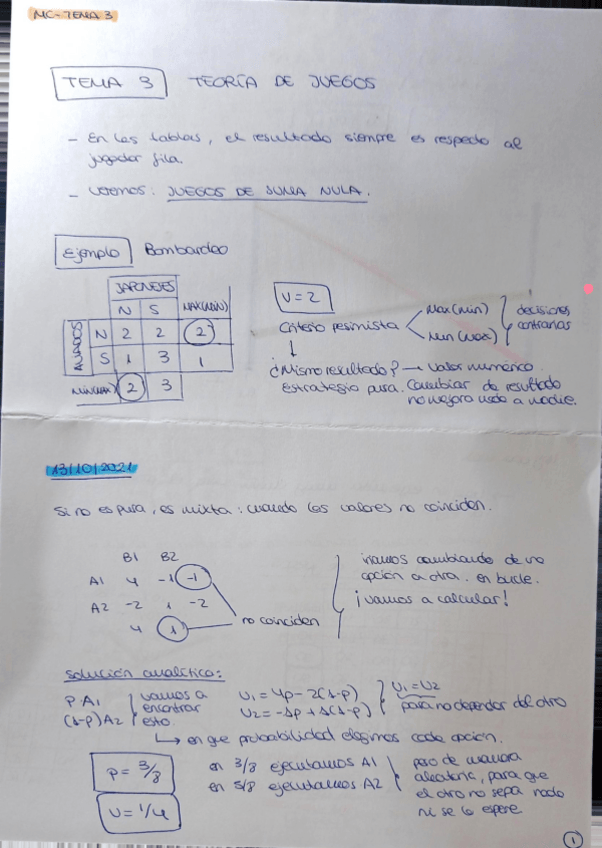 MC-TEMA 3
TEMA 3 TEORÍA DE JUEGOS
- En las tablas, el resultado siempre es respecto al
jugador fila.
- Veremos: JUEGOS DE SUMA NULA.
Ejemplo Bombardeo
JAPONESES
N S MAX(MIN)
ALIADOS N 2 2 2
S 1 3 1
MIN(MAX) 2 3
V=2
Criterio pesimista Max(min) decisiones
Min(Max) contrarias
¿Mismo resultado? → Valor numérico.
estrategia pura. Cambiar de resultado
no mejora nada a nadie.
13/10/2021
Si no es pura, es mixta: cuando los valores no coinciden.
B1 B2
A1 4 -1 -1
A2 -2 1 -2
4 1
no coinciden
iríamos cambiando de una
opción a otra. en bucle.
¡vamos a calcular!
solución analítica:
P A1 vamos a
(1-P) A2 encontrar
esto.
V1 = 4p - 2(1-p)
V2 = -1p + 1(1-p)
V1 = V2
para no depender del otro
↳ en que probabilidad elegimos cada opción.
P = 3/8
V = 1/4
en 3/8 ejecutamos A1
en 5/8 ejecutamos A2
pero de manera
aleatoria, para que
el otro no sepa nada
ni se lo espere
1